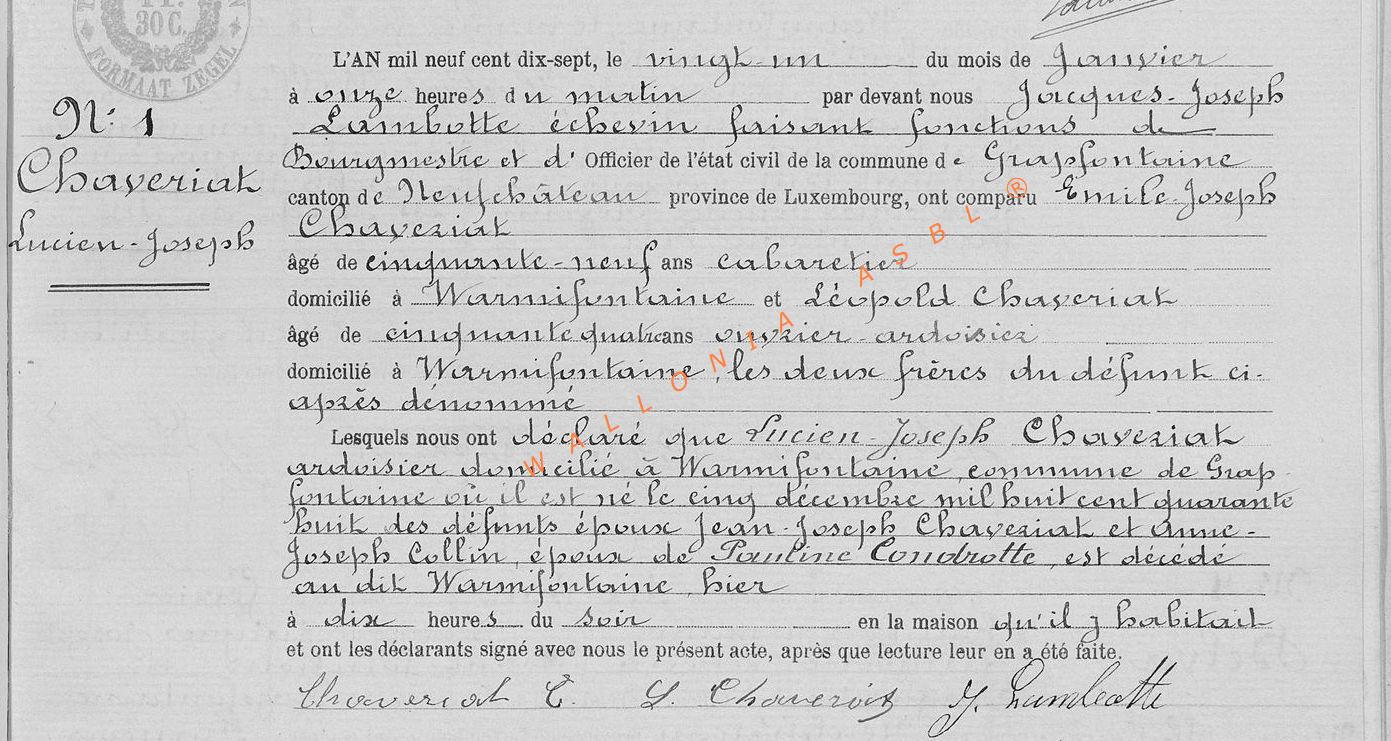 30 C.
FORMAAT ZEGEL
N: 1
Chaveriat
Lucien-Joseph
L'AN mil neuf cent dix-sept, le vingt-un du mois de Janvier
à onze heures du matin par devant nous Jacques-Joseph
Lambotte échevin faisant fonctions de
Bourgmestre et d' Officier de l'état civil de la commune de Grapfontaine
canton de Neufchâteau province de Luxembourg, ont comparu Emile-Joseph
Chaveriat
âgé de cinquante-neuf ans cabaretier
domicilié à Warmifontaine et Léopold Chaveriat
âgé de cinquante quatre ans ouvrier-ardoisier
domicilié à Warmifontaine, les deux frères du défunt ci-
après dénommé
Lesquels nous ont déclaré que Lucien-Joseph Chaveriat
ardoisier domicilié à Warmifontaine, commune de Grap-
fontaine où il est né le cinq décembre mil huit cent quarante
huit des défunts époux Jean-Joseph Chaveriat et Anne-
Joseph Collin, époux de Pauline Condrotte, est décédé
au dit Warmifontaine, hier
à dix heures du soir en la maison qu'il y habitait
et ont les déclarants signé avec nous le présent acte, après que lecture leur en a été faite.
Chaveriat E. L. Chaveriat J. Lambotte
WALLONIA ASBL ®